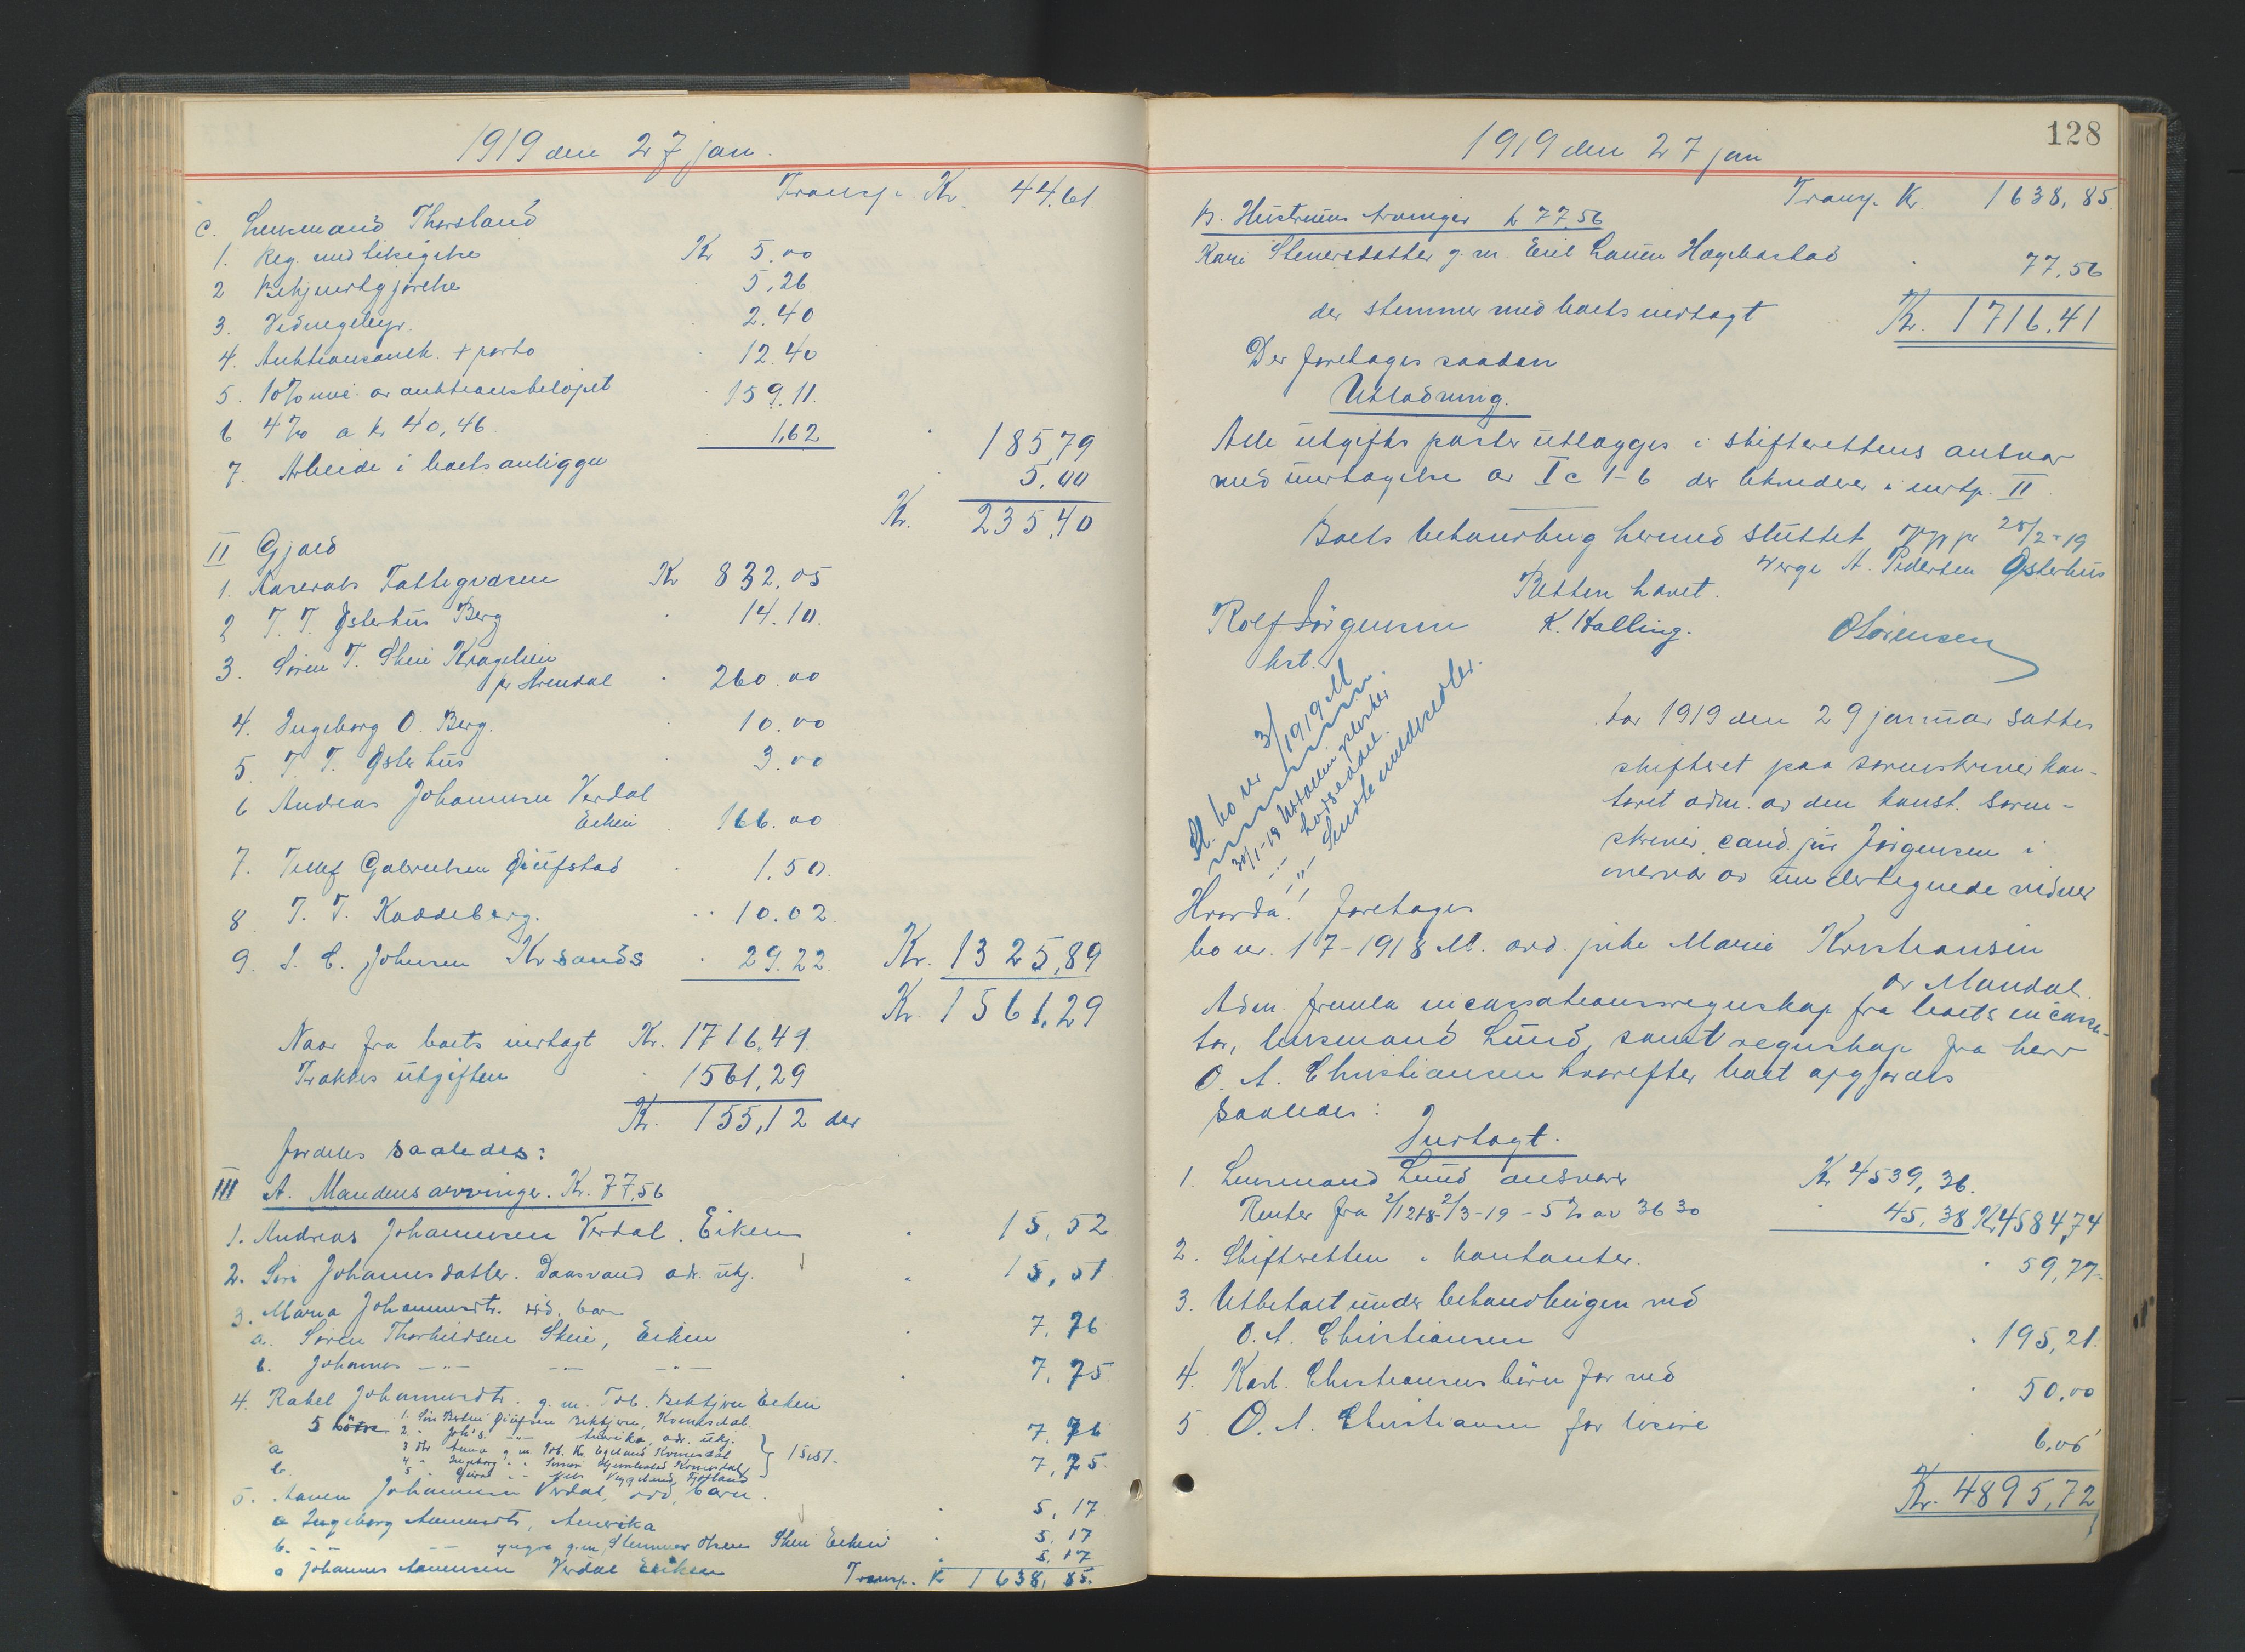 1919 den 27 jan.
Transp. Kr. 44.61
c. Lensmand Thorsland
1. Reg. med likigelse Kr 5.00
2 Bekjendtgjørelse 5,26
3. Vidnegebyr. 2.40
4. Auktionsanb. + porto 12.40
5. 10% av auktionsbeløpet 159.11.
6 4% a kr 40,46 1,62 185,79
7. Arbeide i boets anliggn 5,00
Kr. 235,40
II Gjæld
1. Aaserals Fattigvæsen Kr 832,05
2 T. T. Østerhus Berg 14.10.
3. Søren T. Skeie Kragelien
pr Arendal 260.00
4. Ingeborg O. Berg. 10.00
5. T. T. Østerhus 3.00
6 Andreas Johannesen Verdal
Eiken 166.00
7. Tellef Gabrielsen Gjufstad 1.50.
8 T. T. Kaddeberg. 10.02
9. J. C. Johnsen Krsands 29.22 Kr. 1325,89
Kr. 1561,29
Naar fra boets indtagt Kr. 1716.41
Trækkes utgiften 1561,29
Kr. 155,12 der
fordeles saaledes:
III A. Mandens arvinger. Kr. 77,56
1. Andreas Johannesen Verdal. Eiken 15,52
2. Siri Johannesdatter. Daasvand adr. ukj. 15,51
3. Maria Johannesdtr. død, barn
a. Søren Thorkildsen Skeie, Eiken 7,76
b. Johannes —"— —"— —"— 7,75
4. Rakel Johannesdtr. g. m. Tob. Birkjern Eiken
5 børn 1. Birkjern, Kvinesdal
2. Joh's. —"— Amerika, adr. ukj. 7,76
a 3 dtr Anna g. m. Tob. Kr. Egeland Kvinesdal } 15,51.
b. 4 " Ingeborg " " Simon Kvinesdal 7,75
5 " " " Nils Fjotland
5. Aanen Johannesen Verdal, død, barn.
a Ingeborg Aanensdtr, Amerika 5,17
b. —"— —"— yngre g.m. Steinar Olsen Skeie Eiken 5,17
c Johannes Aanensen Verdal Eiken 5,17
Transp. Kr 1638,85.
1919 den 27 jan
128
Transp. Kr. 1638,85
B. Hustruens Arvinger kr 77,56
Kari Stenersdatter g. m. Eril Lauen Hægebostad 77,56
der stemmer med boets indtagt Kr. 1716,41
Der foretages saadan
Utlodning.
Alle utgifts poster utlægges i skifterettens ansvar
med undtagelse av I c 1-6 der likviderer i indtp. II
Boets behandling hermed sluttet 28/2-19
Verge A. Pedersen Østerhus
Retten hævet.
Rolf Jörgensen K. Halling. O Sörensen
kst.
Sl. bo nr 3/1919 M
30/1-19
Aar 1919 den 29 januar sattes
skifteret paa sorenskriverkon-
toret adm. av den konst. soren-
skriver, cand. jur Jørgensen i
overvær av undertegnede vidner
Hvorda! foretages
bo nr. 17-1918 M. avd. pike Marie Kristiansen
av Mandal.
Adm. fremla incassationsregnskap fra boets incassa-
tor, lensmand Lund, samt regnskap fra herr
O. A. Christiansen hvorefter boet opgjordes
saaledes:
Indtagt.
1. Lensmand Lund ansvarer Kr 4539,36.
Renter fra 2/12 18-2/3-19 - 5% av 3630 45,38 Kr 4584,74
2. Skifteretten i kontanter. 59,77
3. Utbetalt under behandlingen ved
O. A. Christiansen 195,21.
4. Karl. Christiansens börn for ved 50,00
5 O. A. Christiansen for 6,00
Kr. 4895,72